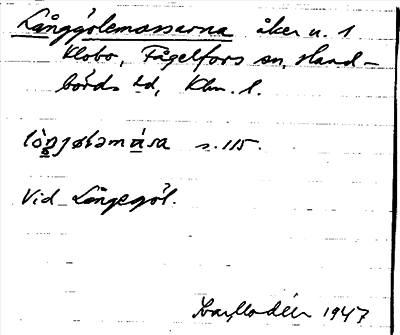 Långgölemossarna åker u. 1
Klobo, Fågelfors sn, Hand-
börds hd, Klm. l.
lòŋjøləmási̥a s. 115.
Vid Långegöl.
1947